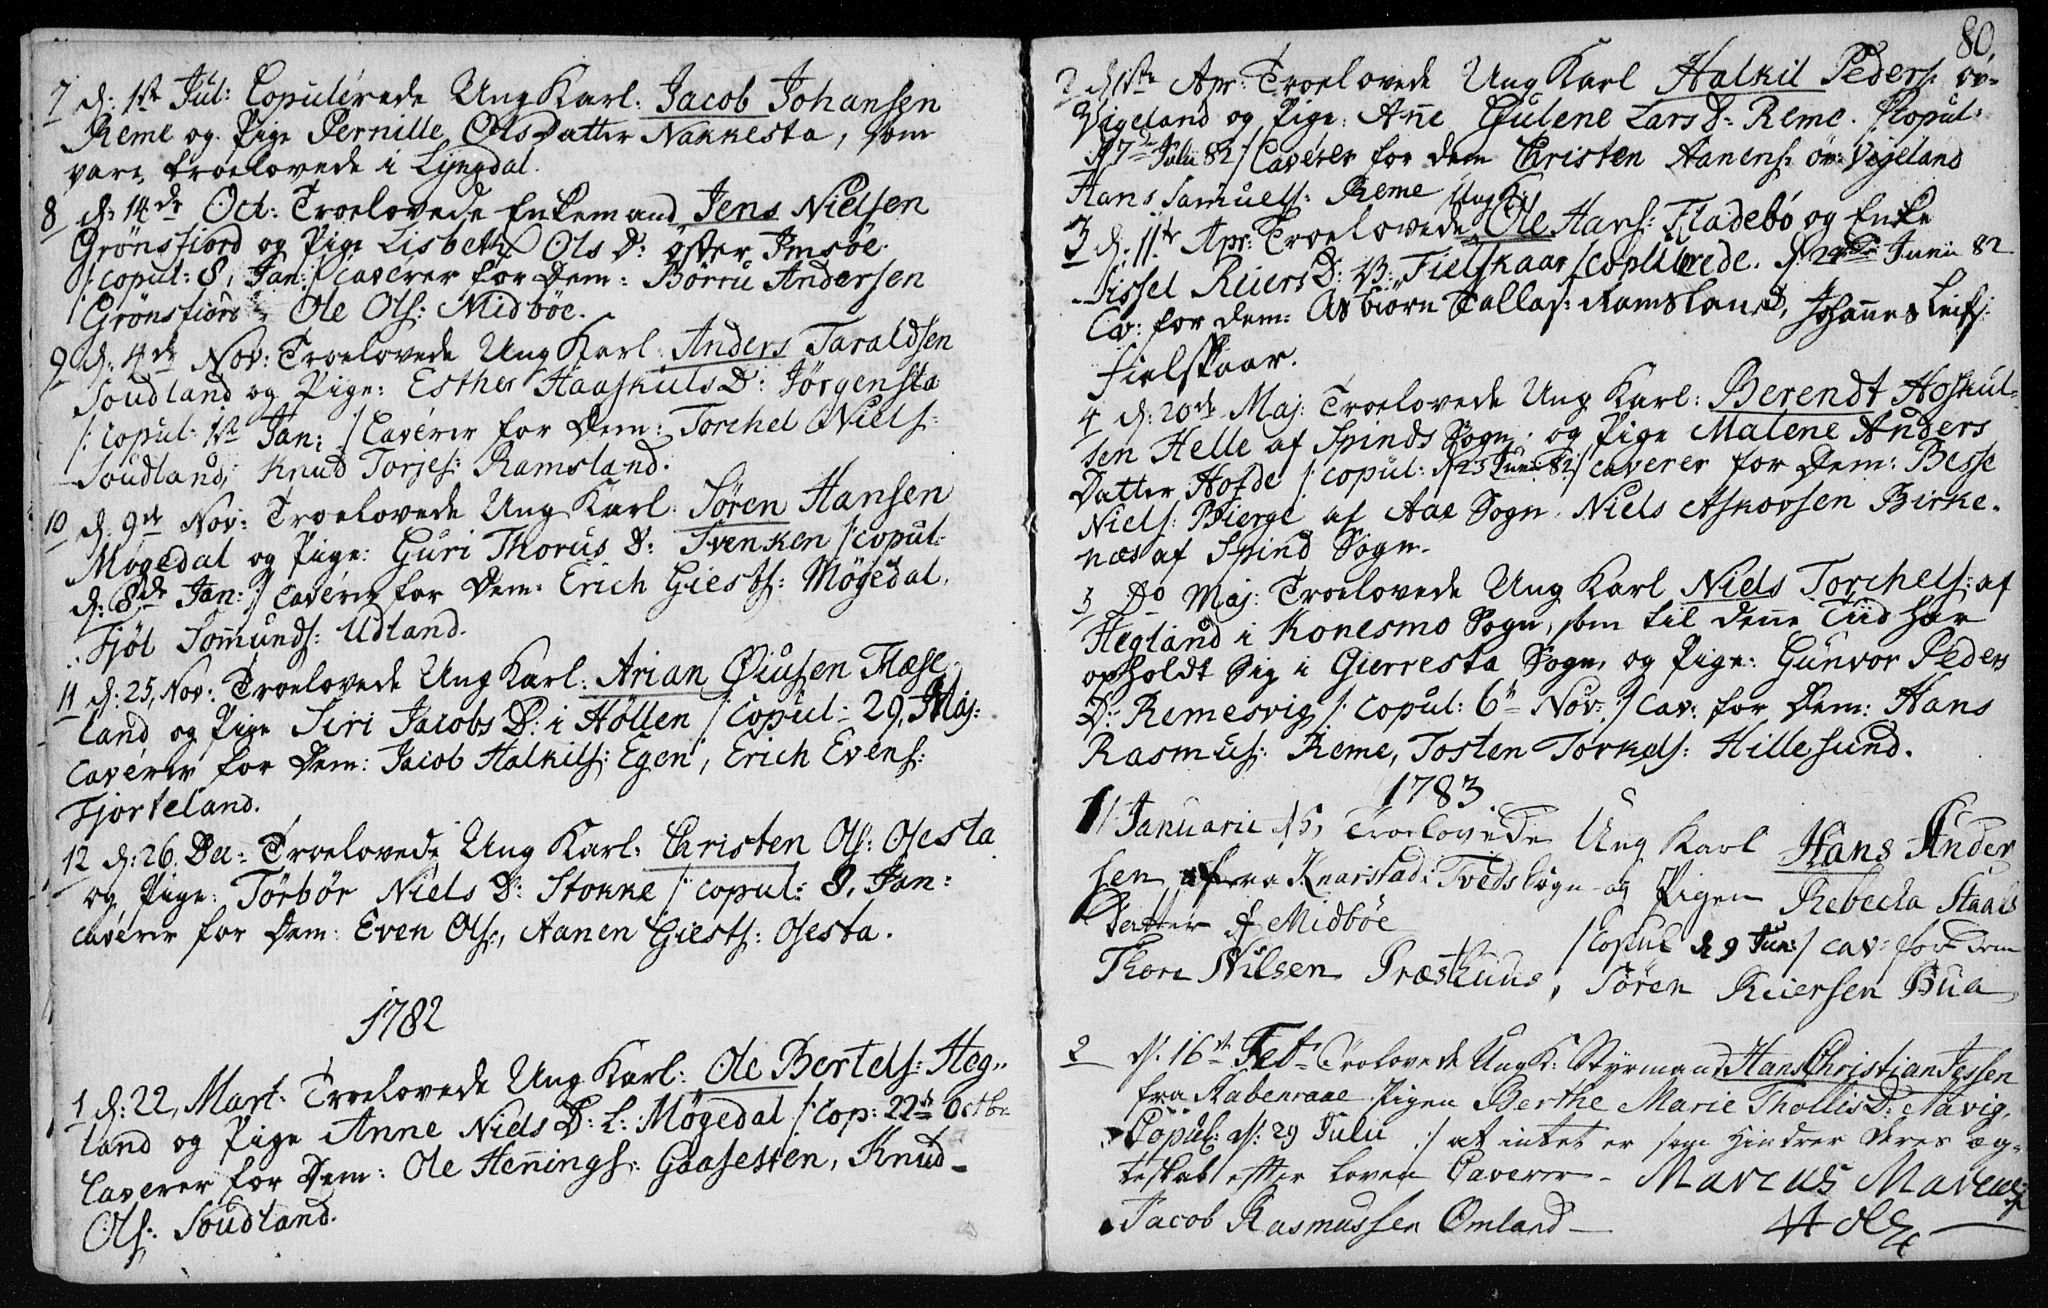 7 d: 1ste Jul: Copulerede Ung Karl: Jacob Johansen
Reme og Pige Pernille OlsDatter Nakkesta, som
vare troelovede i Lyngdal.
8 d: 14de Oct: Troelovede Enkemand Jens Nielsen
Grönsfiord og Pige Lisbeth Ols D: öster Imsöe
/: copul: 8, Jan: /: caverer for Dem: Börru Andersen
Grönsfiord Ole Ols: Midböe.
9 d: 4de Nov: Troelovede Ung Karl: Anders Taraldsen
Soudland og Pige: Esther Haaskuls D: Jörgensta
/: copul: 1ste Jan: / Caverer for Dem: Torchel Niels:
Soudland, Knud Torjes: Ramsland.
10 d: 9de Nov: Troelovede Ung Karl: Sören Hansen
Mögedal og Pige: Guri Thorus D: Svenken /: copul:
d: 8de Jan: / caverer for Dem: Erich Giests: Mögedal,
Fjöl Somunds: Udland.
11 d: 25, Nov: Troelovede Ung Karl: Arian Öiusen Flæse
land og Pige Siri Jacobs D: i Höllen /: copul: 29, Maj:
caverer for Dem: Jacob Halkils: Egen, Erich Evens:
Fjorteland.
12 d: 26. Dec: Troelovede Ung Karl: Christen Ols: Osesta
og Pige: Törbör Niels D: Stokke /: copul: 8, Jan:
caverer for Dem: Even Ols:, Aanen Giests: Osesta.
1782
1 d: 22, Mart: Troelovede Ung Karl: Ole Bertels: Heg-
land og Pige Anne Niels D: L: Mögedal /: Cop: 22de Octbr
Caverer for Dem: Ole Hennings: Gaasesten, Knud
Ols: Soudland.
80,
2 d 1ste Apr: Troelovede Ung Karl Halkil Peders: öv-
Vigeland og Pige: Anne Gulene Lars D: Reme. /: Copul:
d 7de Julii 82 / Caverer for dem Christen Aanens: öv: Vigeland
Hans Samuels: Reme
3 d: 11te Apr: Troelovede Ung K: Ole Hans: Fladebö og Enke
Sissel Reiers D: V: Fielskaar /: coplUerede. d: 24de Junii 82
Cav: for dem: Asbiörn Tallas: Ramsland, Johannes Leifs:
Fielskaar.
4 d: 20de Maj: Troelovede Ung Karl: Berendt Hoskul-
sen Helle af Spinds Sogn og Pige Malene Anders
Datter Hofde /: copul: d 23 Junii 82 / caverer for Dem: Besse
Niels: Bierge af Aae Sogn, Niels Askovsen Birke-
næs af Spind Sogn.
5 Do Maj: Troelovede Ung Karl Niels Torchels: af
Hegland i Konesmo Sogn, som til denne Tiid har
opholdt Sig i Gierresta Sogn, og Pige: Gunvor Peders
D: Remesvig /: copul: 6te Nov: / Cav: for Dem: Hans
Rasmus: Reme, Tosten Torkels: Hillesund.
1783
1/ Januarii d 5, Troelovede Ung Karl Hans Ander
sen fra Knarstad i Tveds sogn og Pigen Rebecka Staals
Datter af Midböe
/Copul d 9 Jun: / Cav: for dem
Thore Nilsen Præsthuus, Sören Reiersen Bua
2 d: 16de Feb: Trolovede Ung K: Styrmand Hans Christian Jessen
fra Aabenraae Pigen Berthe Marie Thollis D: Aavig,
/: Copul: d: 29 Julii :/ at intet er som Hindrer deres æg-
teskab efter Loven Caverer - Marcus Marcus:
Jacob Rasmussen Omland -